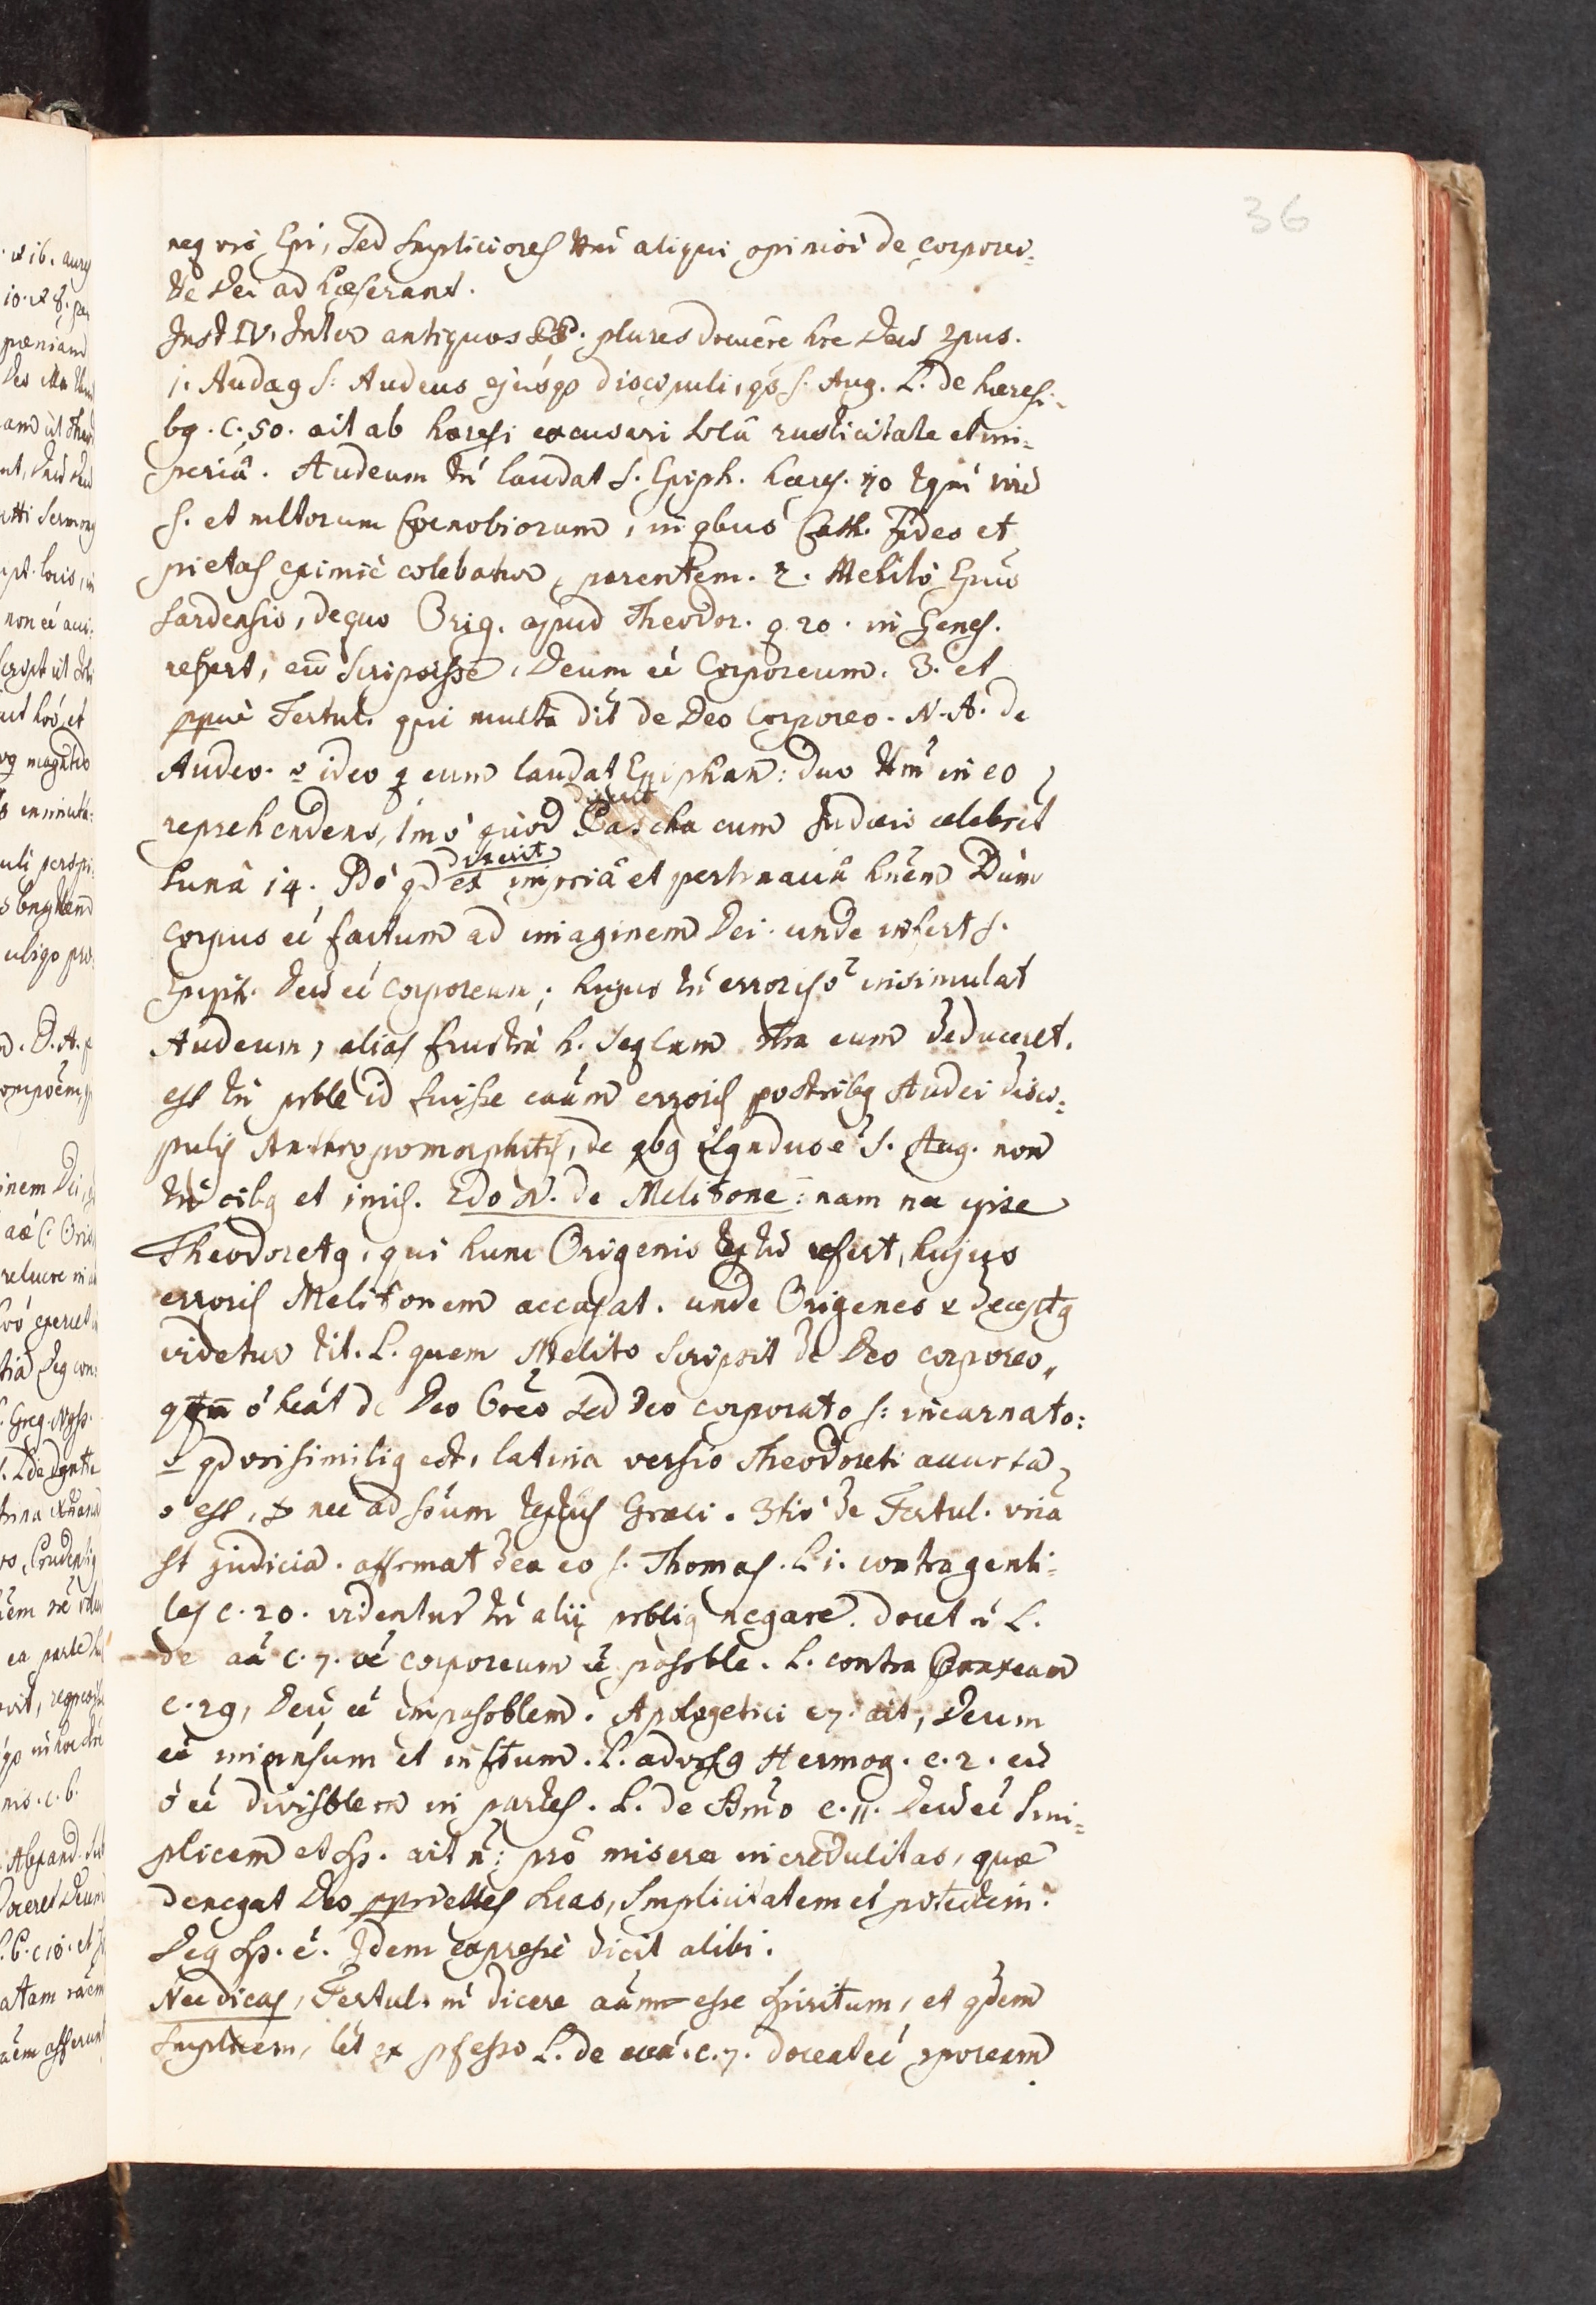 36
neq vrõ Epi, sed simpliciores tm̃ aliqui opinioi de corporei=
te Dei adhæserant.
Inst IV. Inter antiquos PP. plures docuere hre Deus 2pus.
1. Audaq s: Audeus ejusqz discipuli, qos s. Aug. L. de hæresi=
bq. c. 50. ait ab hæresi excusari solâ rusticitate et im=
periâ. Audeum tn̄ laudat s. Epiph. hæres. 70 tqm̄ virũ
s. et mltorum Coenobiorum, in qbus Cath. fides et
pietas eximiè colebatur, parentem. 2. Melito Epũs
sardensis, de quo Orig. apud Theodor. q. 20. in Genes.
refert, eũ scripsisse, Deum eé Corporeum. 3. et
ppuè Tertul. qui multa dit de Deo corporeo. N. A. de
Audeo. õ ideo q eum laudat Epiphan: duo tm̃ in eo
reprehendens, 1mò quod dixerit Pascha cum Judæis celebret
lunâ 14. 2dò qd dixerit ex imperiâ et pertinaciâ hũem Dũm
corpus eé factum ad imaginem Dei. unde infert s.
Epiph. Deũ eé corporeum; hujus tñ erroris õ insimulat
Audeum, alias frustrà h. seqlam 2tra eum deduceret.
est tñ prble id fuisse caũm erroris postribq Audei disci=
pulis Anthropomorphitis, de qbq ilgndus é s. Aug. non
tm̃ oibq et imis. 2do N. de Melitone: nam nec ipse
Theodoretq, qui hunc Origenis textũ refert, hujus
erroris Melitonem accusat. unde Origenes deceptq
videtur tit. L. quem Melito scripsit de Deo corporeo,
õ heát de Deo Corẽo sed Deo corporato s: incarnato:
qd vrisimiliq est, latina versio Theodoreti accurta
õ est, nec ad ssum textus Græci. 3tiò de Tertul. vria
st judicia. affirmat de eo s. Thomas. L 1. contra genti=
les c. 20. videntur tñ alii prbliq negare. docet n̄ L.
de aâ c. 7. oé corporeum eé passble. L. contra Praxeam
c. 29, Deũ eé impassblem. Apologetici c 7. ait, Deum
eé imensum et infitum. L. adversq Hermog. c. 2. eũ
õ eé divisblem in partes. L. de Bmo c. 11. Deũ eé sim=
plicem et sp. ait n̄: prô misera incredulitas, quæ
denegat Deo pprietates suas, simplicitatem et potestem.
Deq sp. é. Idem expressè dicit alibi.
Nec dicas, Tertul. n̄ dicere aâm esse spiritum, et qdem
simplicem, lèt ex pfesso L. de aâ. c. 7. doceat eé 2poream